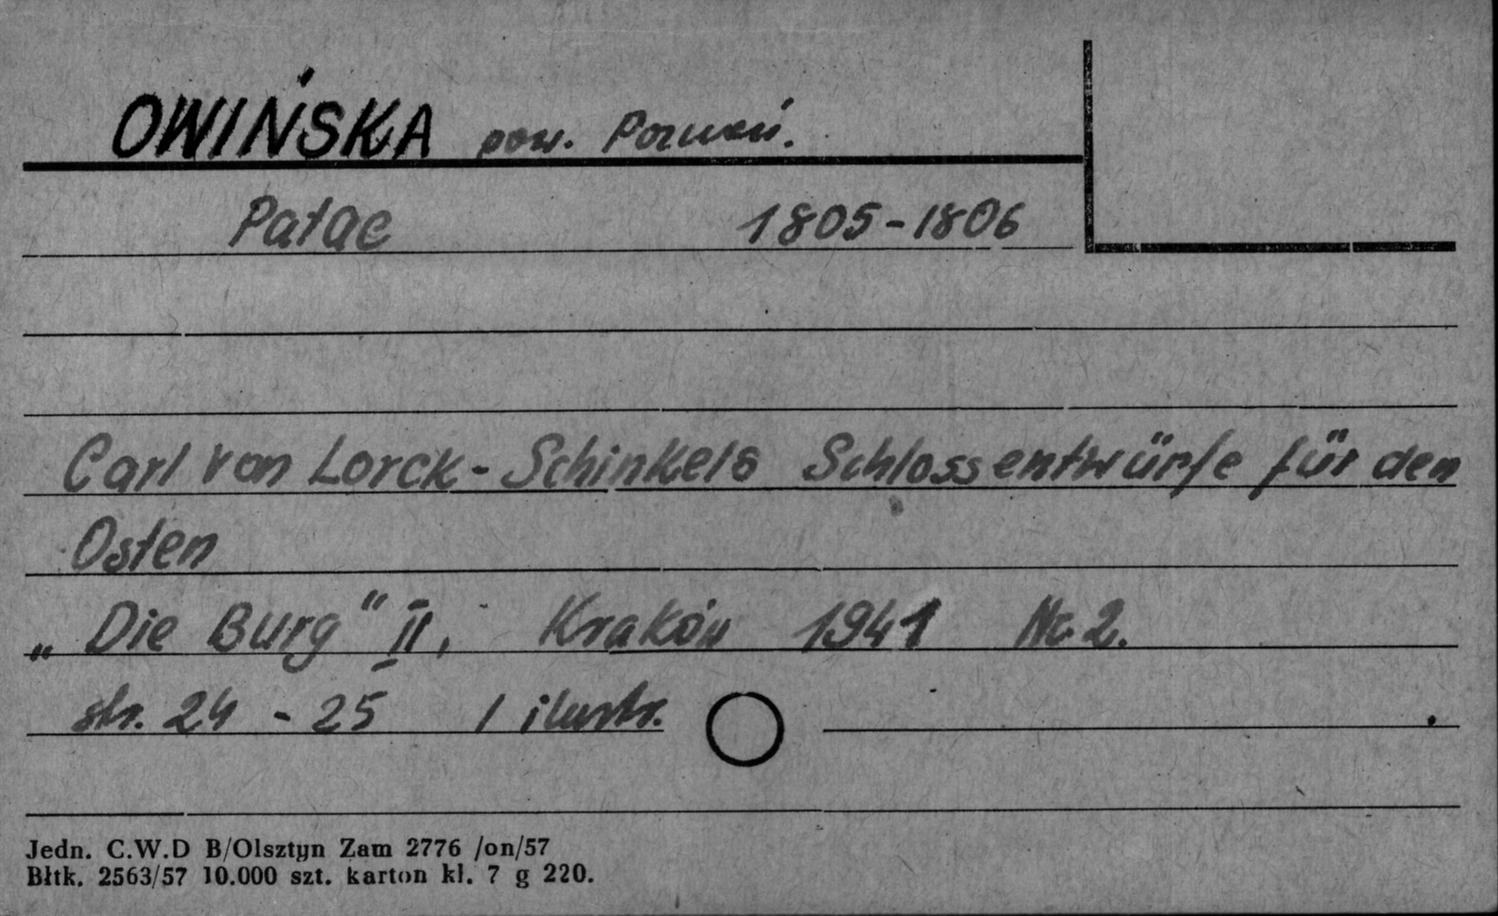 OWIŃSKA pow. Poznań.
Pałac 1805-1806
Carl von Lorck - Schinkels Schlossentwürfe für den
Osten
„Die Burg" II, Kraków 1941 Nr 2.
str. 24 - 25 1 ilustr.
Jedn. C.W.D B/Olsztyn Zam 2776 /on/57
Błtk. 2563/57 10.000 szt. karton kl. 7 g 220.